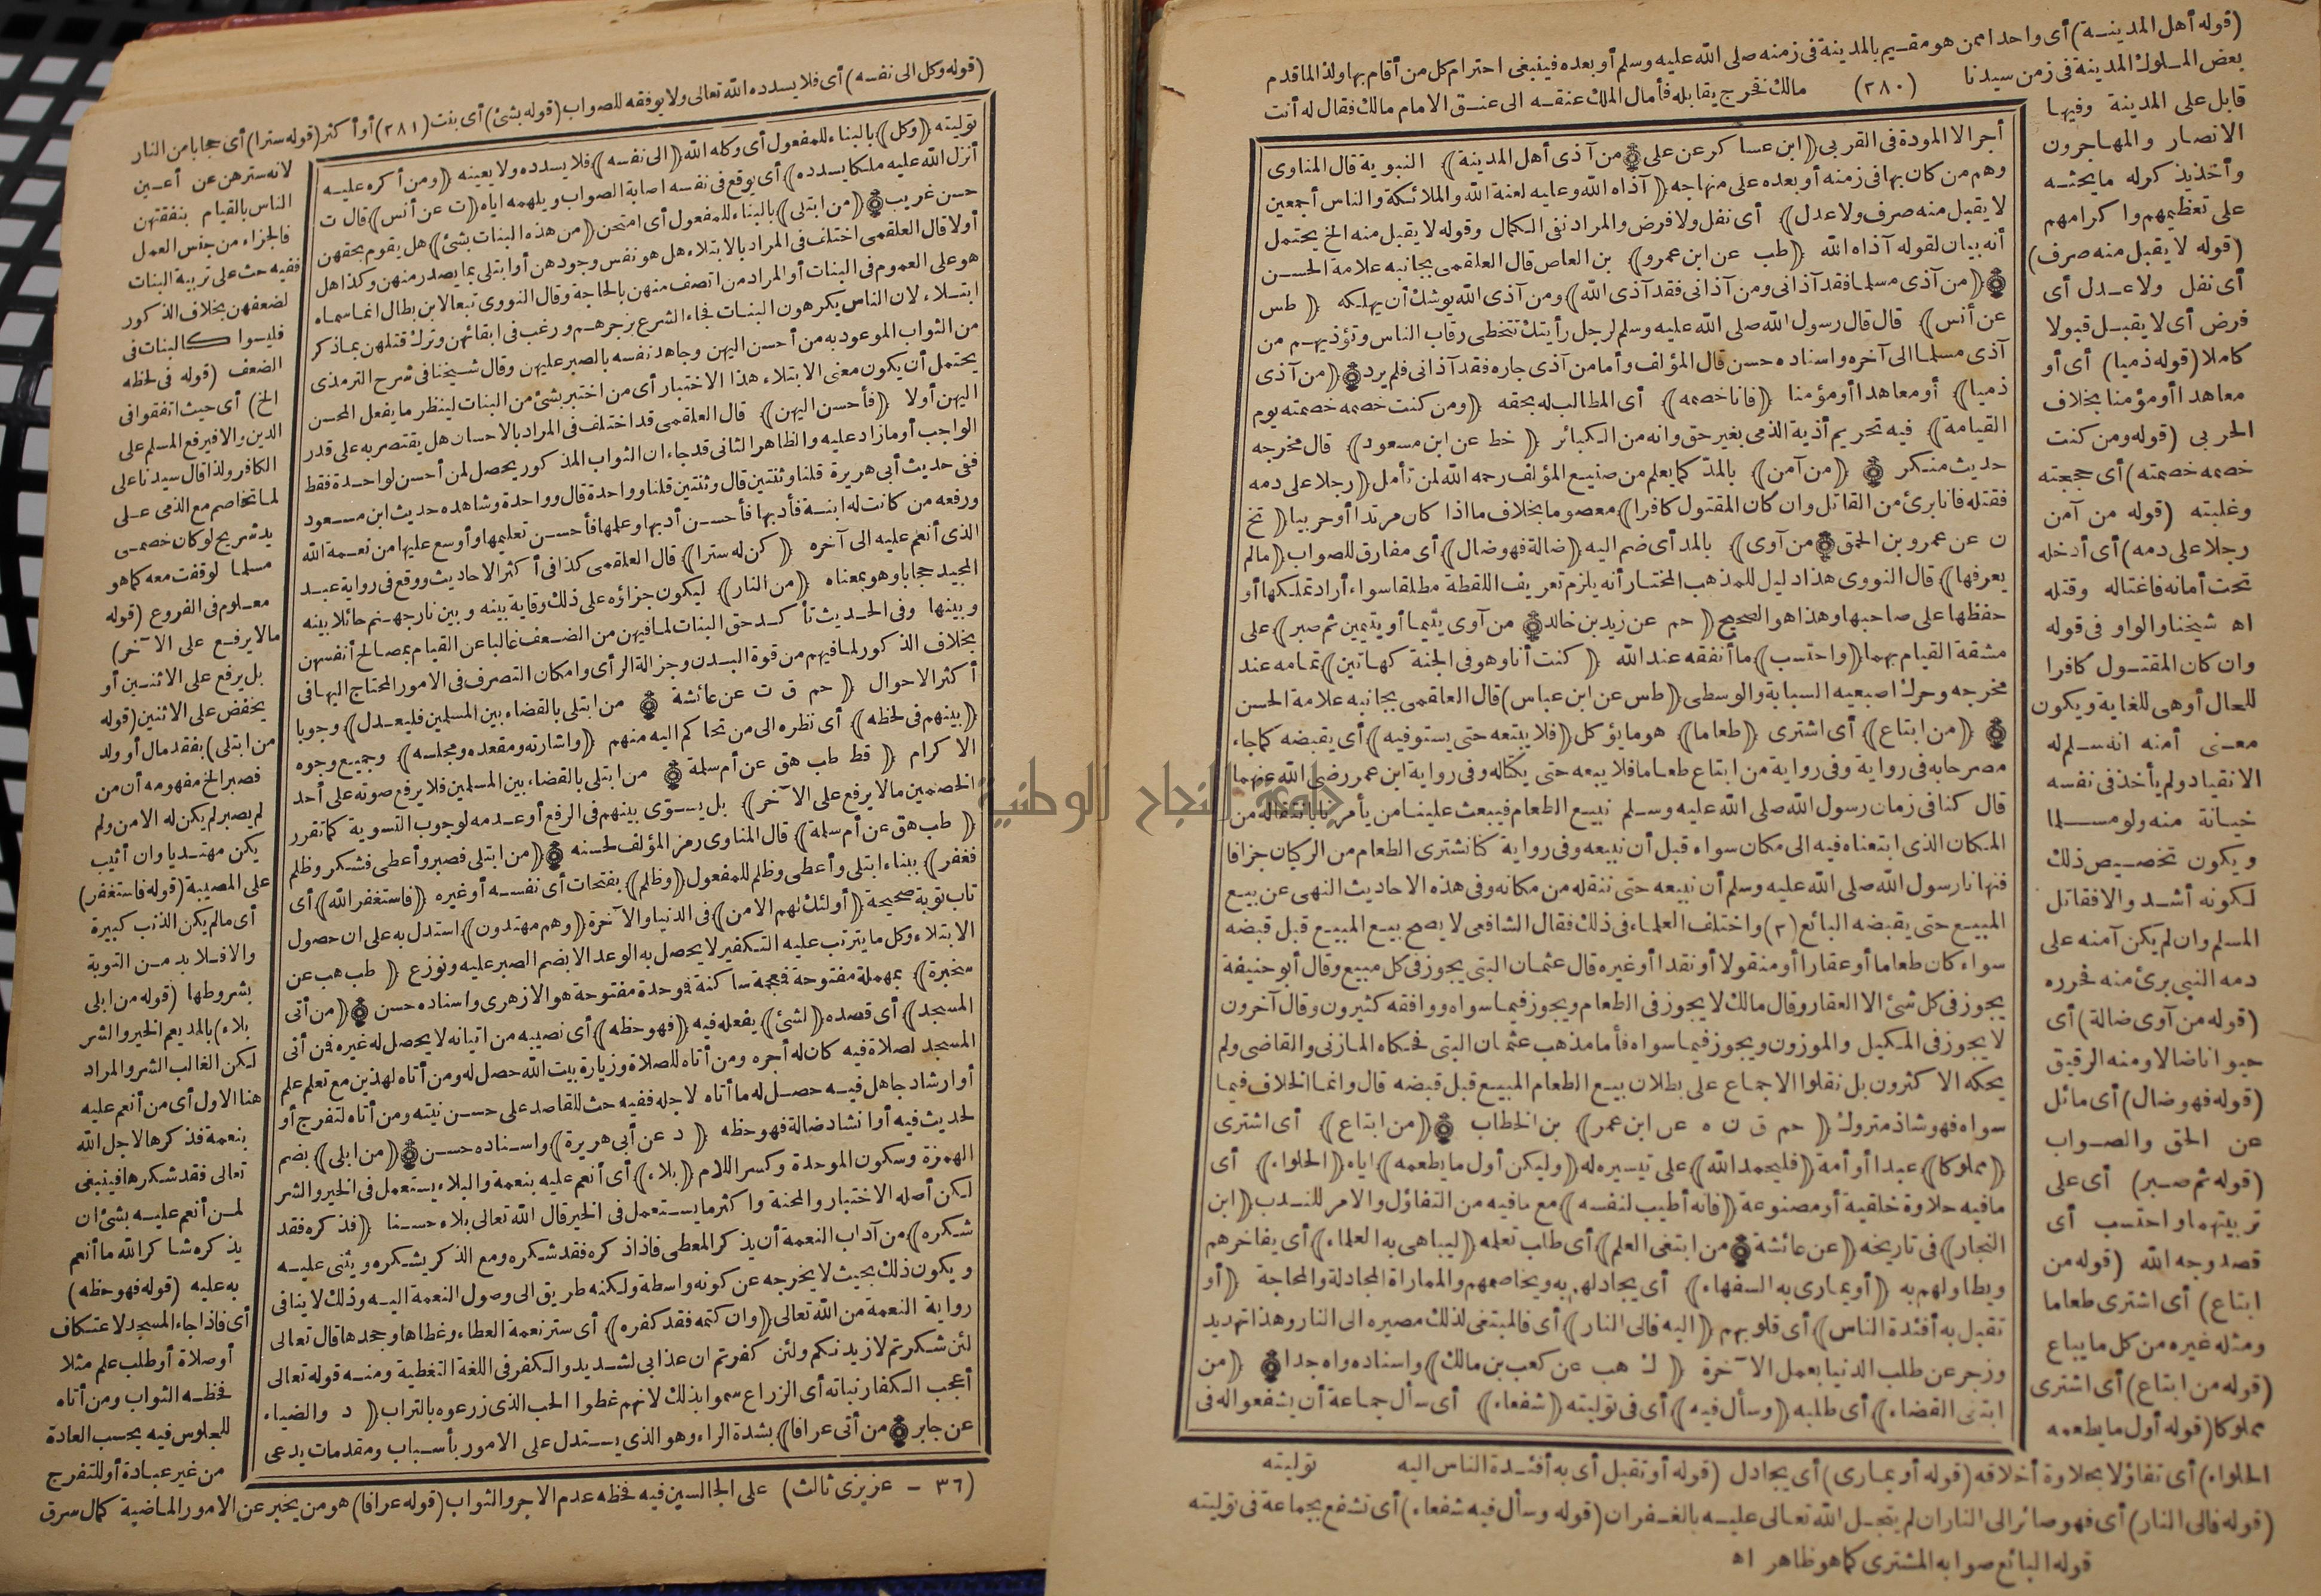 (قوله أهل المدينة) أى واحدا ممن هو مقيم بالمدينة فى زمنه صلى الله عليه وسلم أو بعده فينبغى احترام كل من أقام بها ولذا لما قدم
بعض الملوك المدينة فى زمن سيدنا (٢٨٠) مالك فخرج يقابله فأمال الملك عنقه الى عنق الامام مالك فقال له أنت
قابل على المدينة وفيها
الانصار والمهاجرون
وأخذ يذكر له ما يحثه
على تعظيمهم واكرامهم
(قوله لا يقبل منه صرف)
أى نفل ولا عدل أى
فرض أى لا يقبل قبولا
كاملا (قوله ذميا) أى أو
معاهدا أو مؤمنا بخلاف
الحربى (قوله ومن كنت
خصمه خصمته) أى حججته
وغلبته (قوله من آمن
رجلا على دمه) أى أدخله
تحت أمانه فاغتاله وقتله
اه شيخنا والواو فى قوله
وان كان المقتول كافرا
للحال أو هى للغاية ويكون
معنى أمنه انه سلم له
الانقياد ولم يأخذ فى نفسه
خيانة منه ولو مسلما
ويكون تخصيص ذلك
لكونه أشد والا فقاتل
المسلم وان لم يكن آمنه على
دمه النبى برئ منه فحرره
(قوله من آوى ضالة) أى
حيوانا ضالا ومنه الرقيق
(قوله فهو ضال) أى مائل
عن الحق والصواب
(قوله ثم صبر) أى على
تربيتهما واحتسب أى
قصد وجه الله (قوله من
ابتاع) أى اشترى طعاما
ومثله غيره من كل ما يباع
(قوله من ابتاع) أى اشترى
مملوكا (قوله أول ما يطعمه
أجرا الا المودة فى القربى ﴿ابن عساكر عن على﴾ من آذى أهل المدينة﴾ النبوية قال المناوى
وهم من كان بها فى زمنه أو بعده على منهاجه ﴿آذاه الله وعليه لعنة الله والملائكة والناس أجمعين
لا يقبل منه صرف ولا عدل﴾ أى نفل ولا فرض والمراد نفى الكمال وقوله لا يقبل منه الخ يحتمل
أنه بيان لقوله آذاه الله ﴿طب عن ابن عمرو﴾ بن العاص قال العلقمى بجانبه علامة الحسن
﴿من آذى مسلما فقد آذانى ومن آذانى فقد آذى الله﴾ ومن آذى الله يوشك أن يهلكه ﴿طس
عن أنس﴾ قال قال رسول الله صلى الله عليه وسلم لرجل رأيتك تتخطى رقاب الناس وتؤذيهم من
آذى مسلما الى آخره واسناده حسن قال المؤلف وأما من آذى جاره فقد آذانى فلم يرد ﴿من آذى
ذميا﴾ أو معاهدا أو مؤمنا ﴿فانا خصمه﴾ أى المطالب له بحقه ﴿ومن كنت خصمه خصمته يوم
القيامة﴾ فيه تحريم أذية الذمى بغير حق وانه من الكبائر ﴿خط عن ابن مسعود﴾ قال مخرجه
حديث منكر ﴿من آمن﴾ بالمد كما يعلم من صنيع المؤلف رحمه الله لمن تأمل ﴿رجلا على دمه
فقتله فانا برئ من القاتل وان كان المقتول كافرا﴾ معصوما بخلاف ما اذا كان مرتدا أو حربيا ﴿تخ
ن عن عمرو بن الحمق من آوى﴾ بالمد أى ضم اليه ﴿ضالة فهو ضال﴾ أى مفارق للصواب ﴿مالم
يعرفها﴾ قال النووى هذا دليل للمذهب المختار أنه يلزم تعريف اللقطة مطلقا سواء أراد تملكها أو
حفظها على صاحبها وهذا هو الصحيح ﴿حم عن زيد بن خالد من آوى يتيما أو يتيمين ثم صبر﴾ على
مشقة القيام بهما ﴿واحتسب﴾ ما أنفقه عند الله ﴿كنت أنا وهو فى الجنة كهاتين﴾ تمامه عند
مخرجه وحرك اصبعيه السبابة والوسطى ﴿طس عن ابن عباس﴾ قال العلقمى بجانبه علامة الحسن
﴿من ابتاع﴾ أى اشترى ﴿طعاما﴾ هو ما يؤكل ﴿فلا يبعه حتى يستوفيه﴾ أى يقبضه كما جاء
مصرحا به فى رواية وفى رواية من ابتاع طعاما فلا يبعه حتى يكتاله وفى رواية ابن عمر رضى الله عنهما
قال كنا فى زمان رسول الله صلى الله عليه وسلم نبيع الطعام فيبعث علينا من يأمرنا بانتقاله من
المكان الذى ابتعناه فيه الى مكان سواء قبل أن نبيعه وفى رواية كنا نشترى الطعام من الركبان جزافا
فنهانا رسول الله صلى الله عليه وسلم أن نبيعه حتى ننقله من مكانه وفى هذه الاحاديث النهى عن بيع
المبيع حتى يقبضه البائع (٢) واختلف العلماء فى ذلك فقال الشافعى لا يصح بيع المبيع قبل قبضه
سواء كان طعاما أو عقارا أو منقولا أو نقدا أو غيره قال عثمان البتى يجوز فى كل مبيع وقال أبو حنيفة
يجوز فى كل شئ الا العقار وقال مالك لا يجوز فى الطعام ويجوز فيما سواه ووافقه كثيرون وقال آخرون
لا يجوز فى المكيل والموزون ويجوز فيما سواه فأما مذهب عثمان البتى فحكاه المازنى والقاضى ولم
يحكه الاكثرون بل نقلوا الاجماع على بطلان بيع الطعام المبيع قبل قبضه قال وانما الخلاف فيما
سواه فهو شاذ متروك ﴿حم ق ن ه عن ابن عمر﴾ بن الخطاب ﴿من ابتاع﴾ أى اشترى
﴿مملوكا﴾ عبدا أو أمة ﴿فليحمد الله﴾ على تيسيره له ﴿وليكن أول ما يطعمه﴾ اياه ﴿الحلواء﴾ أى
مافيه حلاوة خلقية أو مصنوعة ﴿فانه أطيب لنفسه﴾ مع ما فيه من التفاؤل والامر للندب ﴿ابن
النجار﴾ فى تاريخه ﴿عن عائشة من ابتغى العلم﴾ أى طلب تعلمه ﴿ليباهى به العلماء﴾ أى يفاخرهم
ويطاولهم به ﴿أو يمارى به السفهاء﴾ أى يجادلهم به ويخاصمهم والمماراة المجادلة والمحاجة ﴿أو
تقبل به أفئدة الناس﴾ أى قلوبهم ﴿اليه فالى النار﴾ أى فالمبتغى لذلك مصيره الى النار وهذا تهديد
وزجر عن طلب الدنيا بعمل الآخرة ﴿ك هب عن كعب بن مالك﴾ واسناده واه جدا ﴿من
ابتغى القضاء﴾ أى طلبه ﴿وسأل فيه﴾ أى فى توليته ﴿شفعاء﴾ أى سأل جماعة أن يشفعوا له فى
الحلواء) أى تفاؤلا بحلاوة أخلاقه (قوله أو يمارى) أى يجادل (قوله أو تقبل أى به أفئدة الناس اليه توليته
(قوله فالى النار) أى فهو صائر الى النار ان لم يتجل الله تعالى عليه بالغفران (قوله وسأل فيه شفعاء) أى تشفع بجماعة فى توليته
قوله البائع صوابه المشترى كما هو ظاهر اه
جامعة النجاح الوطنية
(قوله وكل الى نفسه) أى فلا يسدده الله تعالى ولا يوفقه للصواب (قوله بشئ) أى بنت (٢٨١) أو أكثر (قوله سترا) أى حجابا من النار
توليته ﴿وكل﴾ بالبناء للمفعول أى وكله الله ﴿الى نفسه﴾ فلا يسدده ولا يعينه ﴿ومن أكره عليه
أنزل الله عليه ملكا يسدده﴾ أى يوقع فى نفسه اصابة الصواب ويلهمه اياه ﴿ت عن أنس﴾ قال ت
حسن غريب ﴿من ابتلى﴾ بالبناء للمفعول أى امتحن ﴿من هذه البنات بشئ﴾ هل يقوم بحقهن
أولا قال العلقمى اختلف فى المراد بالابتلاء هل هو نفس وجودهن أو ابتلى بما يصدر منهن وكذا هل
هو على العموم فى البنات أو المراد من اتصف منهن بالحاجة وقال النووى تبعا لابن بطال انما سماه
ابتلاء لان الناس يكرهون البنات فجاء الشرع بزجرهم ورغب فى ابقائهن وترك قتلهن بما ذكر
من الثواب الموعود به من أحسن اليهن وجاهد نفسه بالصبر عليهن وقال شيخنا فى شرح الترمذى
يحتمل أن يكون معنى الابتلاء هذا الاختبار أى من اختبر بشئ من البنات لينظر ما يفعل المحسن
اليهن أولا ﴿فأحسن اليهن﴾ قال العلقمى قد اختلف فى المراد بالاحسان هل يقتصر به على قدر
الواجب أو مازاد عليه والظاهر الثانى قد جاء ان الثواب المذكور يحصل لمن أحسن لواحدة فقط
ففى حديث أبى هريرة قلنا وثنتين قال وثنتين قلنا وواحدة قال وواحدة وشاهده حديث ابن مسعود
ورفعه من كانت له ابنة فأدبها فأحسن أدبها وعلمها فأحسن تعليمها وأوسع عليها من نعمة الله
الذى أنعم عليه الى آخره ﴿كن له سترا﴾ قال العلقمى كذا فى أكثر الاحاديث ووقع فى رواية عبد
المجيد حجابا وهو بمعناه ﴿من النار﴾ ليكون جزاؤه على ذلك وقاية بينه وبين نار جهنم حائلا بينه
وبينها وفى الحديث تأكد حق البنات لما فيهن من الضعف غالبا عن القيام بمصالح أنفسهن
بخلاف الذكور لما فيهم من قوة البدن وجزالة الرأى وامكان التصرف فى الامور المحتاج اليها فى
أكثر الاحوال ﴿حم ق ت عن عائشة من ابتلى بالقضاء بين المسلمين فليعدل﴾ وجوبا
﴿بينهم فى لحظه﴾ أى نظره الى من تحاكم اليه منهم ﴿واشارته ومقعده ومجلسه﴾ وجميع وجوه
الاكرام ﴿قط طب هق عن أم سلمة من ابتلى بالقضاء بين المسلمين فلا يرفع صوته على أحد
الخصمين مالا يرفع على الآخر﴾ بل يسوى بينهم فى الرفع أو عدمه لوجوب التسوية كما تقرر
﴿طب هق عن أم سلمة﴾ قال المناوى رمز المؤلف لحسنه ﴿من ابتلى فصبر وأعطى فشكر وظلم
فغفر﴾ ببناء ابتلى وأعطى وظلم للمفعول ﴿وظلم﴾ بفتحات أى نفسه أو غيره ﴿فاستغفر الله﴾ أى
تاب توبة صحيحة ﴿أولئك لهم الامن﴾ فى الدنيا والآخرة ﴿وهم مهتدون﴾ استدل به على ان حصول
الابتلاء وكل ما يترتب عليه التكفير لا يحصل به الوعد الا بضم الصبر عليه ونوزع ﴿طب هب عن
سخبرة﴾ بمهملة مفتوحة فمعجمة ساكنة فموحدة مفتوحة هو الازهرى واسناده حسن ﴿من أتى
المسجد﴾ أى قصده ﴿لشئ﴾ يفعله فيه ﴿فهو حظه﴾ أى نصيبه من اتيانه لا يحصل له غيره فمن أتى
المسجد لصلاة فيه كان له أجره ومن أتاه للصلاة وزيارة بيت الله حصل له ومن أتاه لهذين مع تعلم علم
أو ارشاد جاهل فيه حصل له ما أتاه لاجله ففيه حث للقاصد على حسن نيته ومن أتاه لتفرج أو
لحديث فيه أو انشاد ضالة فهو حظه ﴿د عن أبى هريرة﴾ واسناده حسن ﴿من ابلى﴾ بضم
الهمزة وسكون الموحدة وكسر اللام ﴿بلاء﴾ أى أنعم عليه بنعمة والبلاء يستعمل فى الخير والشر
لكن أصله الاختبار والمحنة واكثر ما يستعمل فى الخير قال الله تعالى بلاء حسنا ﴿فذكره فقد
شكره﴾ من آداب النعمة أن يذكر المعطى فاذا ذكره فقد شكره ومع الذكر يشكره ويثنى عليه
ويكون ذلك بحيث لا يخرجه عن كونه واسطة ولكنه طريق الى وصول النعمة اليه وذلك لا ينافى
رواية النعمة من الله تعالى ﴿وان كتمه فقد كفره﴾ أى ستر نعمة العطاء وغطاها وجحدها قال تعالى
لئن شكرتم لازيدنكم ولئن كفرتم ان عذابى لشديد والكفر فى اللغة التغطية ومنه قوله تعالى
أعجب الكفار نباته أى الزراع سموا بذلك لانهم غطوا الحب الذى زرعوه بالتراب ﴿د والضياء
عن جابر من أتى عرافا﴾ بشدة الراء وهو الذى يستدل على الامور بأسباب ومقدمات يدعى
لانه سترهن عن أعين
الناس بالقيام بنفقتهن
فالجزاء من جنس العمل
ففيه حث على تربية البنات
لضعفهن بخلاف الذكور
فليسوا كالبنات فى
الضعف (قوله فى لحظه
الخ) أى حيث اتفقوا فى
الدين والا فيرفع المسلم على
الكافر ولذا قال سيدنا على
لما تخاصم مع الذمى على
يد شريح لو كان خصمى
مسلما لوقفت معه كما هو
معلوم فى الفروع (قوله
مالا يرفع على الآخر)
بل يرفع على الاثنين أو
يخفض على الاثنين (قوله
من ابتلى) بفقد مال أو ولد
فصبر الخ مفهومه أن من
لم يصبر لم يكن له الامن ولم
يكن مهتديا وان أثيب
على المصيبة (قوله فاستغفر)
أى مالم يكن الذنب كبيرة
والا فلا بد من التوبة
بشروطها (قوله من ابلى
بلاء) بالمد يعم الخير والشر
لكن الغالب الشر والمراد
هنا الاول أى من أنعم عليه
بنعمة فذكرها لاجل الله
تعالى فقد شكرها فينبغى
لمن أنعم عليه بشئ ان
يذكره شاكرا لله ما أنعم
به عليه (قوله فهو حظه)
أى فاذا جاء المسجد لاعتكاف
أو صلاة أو طلب علم مثلا
فحظه الثواب ومن أتاه
للجلوس فيه بحسب العادة
من غير عبادة أو للتفرج
(٣٦ - عزيزى ثالث) على الجالسين فيه فحظه عدم الاجر والثواب (قوله عرافا) هو من يخبر عن الامور الماضية كمال سرق